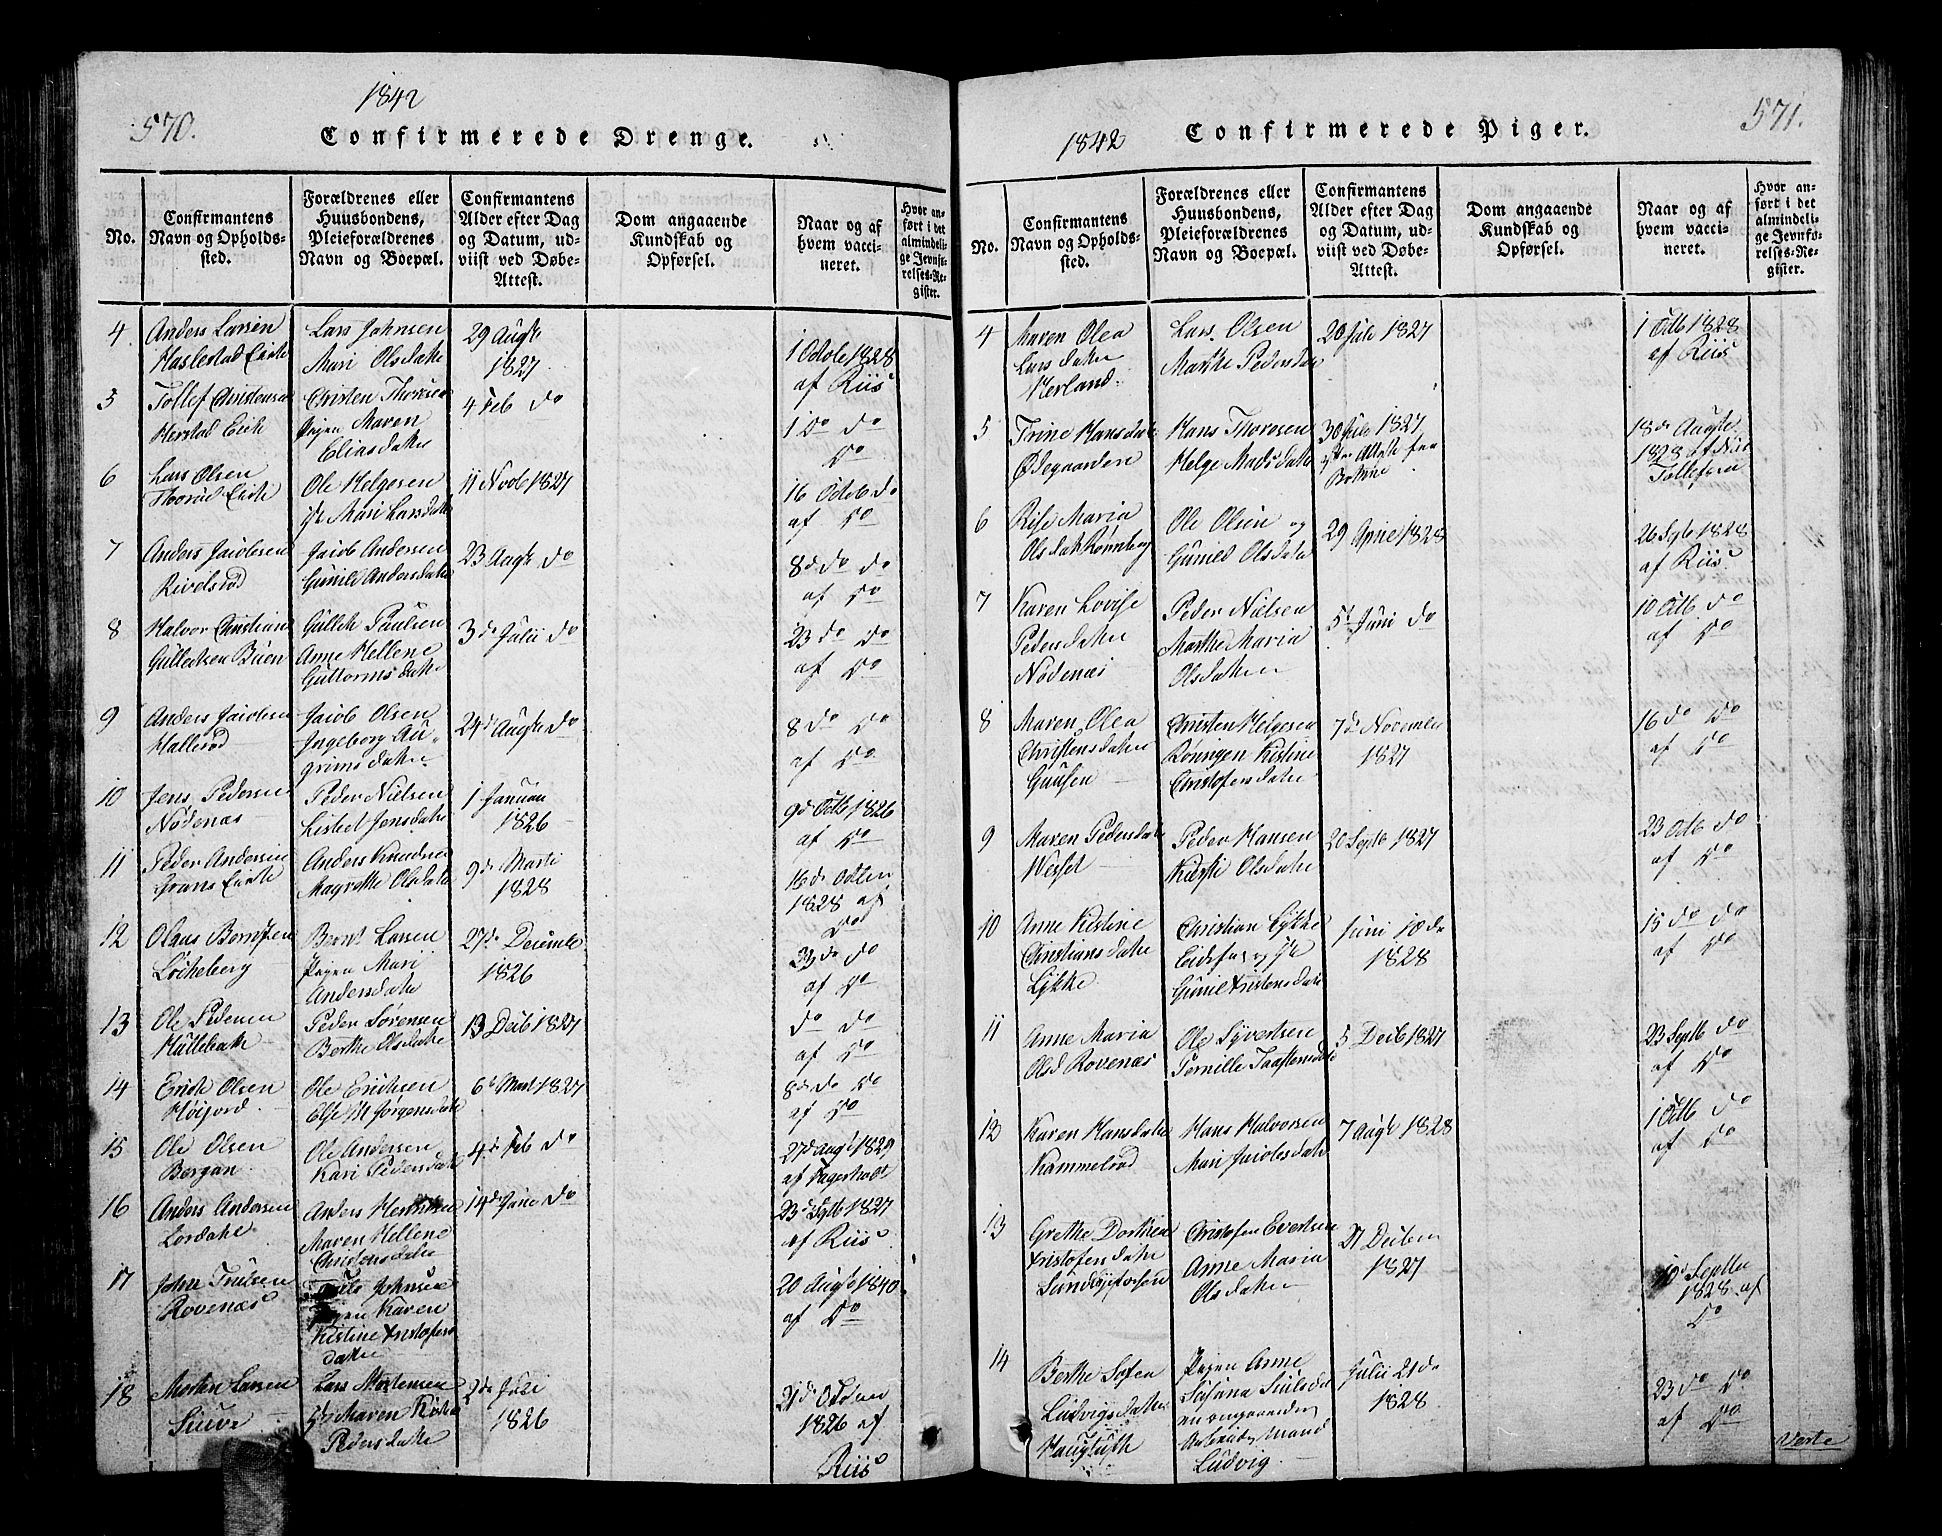 570.
1842
Confirmerede Drenge.
No.
Confirmantens
Navn og Opholds-
sted.
Forældrenes eller
Huusbondens,
Pleieforældrenes
Navn og Boepæl.
Confirmantens
Alder efter Dag
og Datum, ud-
viist ved Døbe-
Attest.
Dom angaaende
Kundskab og
Opførsel.
Naar og af
hvem vacci-
neret.
Hvor an-
ført i det
almindeli-
ge Jevnfø-
relses-Re-
gister.
4
Anders Larsen
Haslestad Eie
Lars Johnsen
Mari Olsdatte
29 Augt
1827
1 Octob 1828
af Riis
5
Tollef Christensen
Herstad
Christen Thoresen
Pigen Maren
Eliasdatte
4 Feb do
1 Do do
Do
6
Lars Olsen
Thorud
Ole Helgesen
Mari Larsdatte
11 Novb 1827
16 Octob do
af Do
7
Anders Jacobsen
Rivelsrød
Jacob Andersen
Gunild Andersdatte
23 Augt do
8de do do
af Do
8
Halvor Christian
Gulleksen Buen
Gullek Paulsen
Anne Hellene
Guttormsdatte
3de Julii do
23 do do
af Do
9
Anders Jacobsen
Hallerød
Jacob Olsen
Ingeborg Au-
grimsdatte
24de Augt do
8 do Do
af Do
10
Jens Pedersen
Nødenæs
Peder Nielsen
Lisbet Jensdatte
1 Januar
1826
9de Octb 1826
af Do
11
Peder Andersen
Grans
Anders Knudsen
Magrethe Olsdatte
9de Marti
1828
16de Octbn
1828 af
Do
12
Olaus Berntsen
Løcheberg
Bernt Larsen
Pigen Mari
Andersdatte
27de Decembe
1826
do do
af Do
13
Ole Pedersen
Hullebak
Peder Sørensen
Berthe Olsdatte
13 Decb 1827
do do
af Do
14
Erich Olsen
Høijord
Ole Erichsen
Else M Jørgensdatte
6t Mart 1827
8de do Do
af Do
15
Ole Olsen
Bergan
Ole Andersen
Kari Pedersdatte
4de Feb do
27d Augt 1829
af Fagerholt
16
Anders Andersen
Lørdahl
Anders
Maren Hellene
Christensdatte
14de do
23de Septb 1827
af Riis
17
John Trulsen
Rovenæs
Truls Johnsen
Pigen Karen
Kistine Kristofers
datte
20 Augt 1840
af Do
18
Morten Larsen
Siuve
Lars Mortensen
Maren
Pedersdatte
2de Juli
1826
21de Octbn
1826 af
Riis
571.
1842
Confirmerede Piger.
No.
Confirmantens
Navn og Opholds-
sted.
Forældrenes eller
Huusbondens,
Pleieforældrenes
Navn og Boepæl.
Confirmantens
Alder efter Dag
og Datum, ud-
viist ved Døbe-
Attest.
Dom angaaende
Kundskab og
Opførsel.
Naar og af
hvem vacci-
neret.
Hvor an-
ført i det
almindeli-
ge Jevnfø-
relses-Re-
gister.
4
Maren Olea
Larsdatte
Herland
Lars Olsen
Marthe Pedersdat
20 Juli 1827
1 Octb 1828
af Riis
5
Trine Hansdatte
Ødegaarden
Hans Thoresen
Helge Madsdatte
30 Juli 1827
Attest fra
Botne
18de Augte
1828 af
Tollefsen
6
Rise Maria
Olsdat Rønneberg
Ole Olsen og
Gunild Olsdatte
29 April 1828
26 Septb 1828
af Riis
7
Karen Lovise
Pedersdatte
Nødenæs
Peder Nielsen
Marthe Maria
Olsdatter
5t Juni do
10 Octb do
af Do
8
Maren Olea
Christensdatte
Gausen
Christen Helgesen
Røningen Kistine
Christofersdatte
7de Novembe
1827
16 do Do
af Do
9
Maren Pedersdatte
Wesset
Peder Hansen
Kirsti Olsdatte
20 Septb 1827
23 Octb do
af Do
10
Anne Kistine
Christiansdatte
Lykke
Christian Lykke
Eidsfos og
Gunild Kristensdatte
Juni 10 de
1828
15 do do
af Do
11
Anne Maria
Olsd Rovenæs
Ole Syvertsen
Pernille
5 Decb 1827
23 Septb do
af Do
12
Karen Hansdatte
Kammelrød
Hans Halvorsen
Mari Jacobsdatte
7 Augt 1828
1 Octb do
af Do
13
Grethe Dorthea
Kristofersdatte
Christofer Evertsen
Anne Maria
Olsdatte
21 Decben
1827
10de Septbe
1828 af
Do
14
Berthe Sofea
Ludvigsdatte
Haugtuft
Pigen Anne
Susana
en omgaaende
Mand
Ludvig
Julii 21 de
1828
23 do Do
af Do
Verte